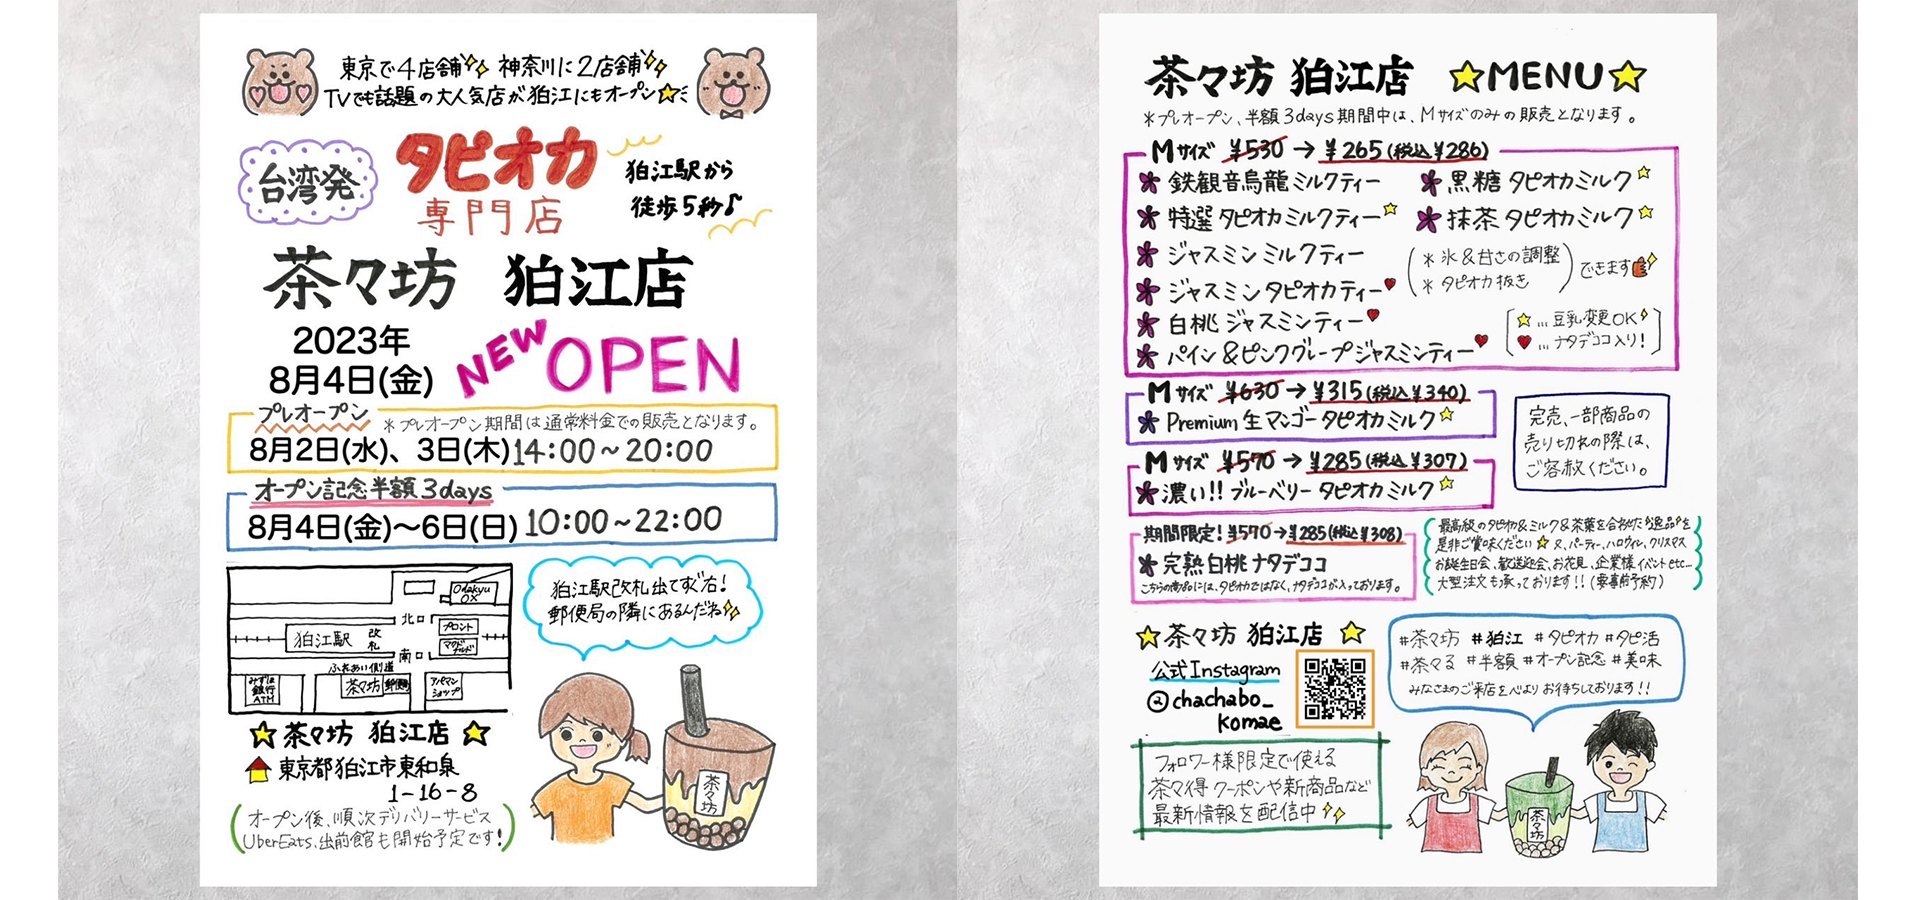 東京で4店舗 神奈川に2店舗
TVでも話題の大人気店が狛江にもオープン
台湾発
タピオカ
専門店
狛江駅から
徒歩5秒♪
茶々坊 狛江店
2023年
8月4日(金)
NEW OPEN
プレオープン
*プレオープン期間は通常料金での販売となります。
8月2日(水)、3日(木)14:00~20:00
オープン記念半額3days
8月4日(金)〜6日(日) 10:00~22:00
Odakyu
OX
北口
狛江駅
改札
フロント
マクドナルド
南口
ふれあい側道
みずほ
銀行
ATM
茶々坊
郵便局
アパマン
ショップ
狛江駅改札出てすぐ右!
郵便局の隣にあるんだね
茶々坊
茶々坊 狛江店
東京都狛江市東和泉
1-16-8
オープン後、順次デリバリーサービス
UberEats、出前館も開始予定です!
茶々坊 狛江店 ☆MENU☆
*プレオープン、半額3days期間中は、Mサイズのみの販売となります。
Mサイズ ¥530 → ¥265(税込¥286)
鉄観音烏龍ミルクティー
特選タピオカミルクティー
ジャスミンミルクティー
ジャスミンタピオカティー
白桃ジャスミンティー
パイン&ピンクグレープジャスミンティー
黒糖タピオカミルク
抹茶タピオカミルク
*氷&甘さの調整
*タピオカ抜き
できます
☆…豆乳変更OK
♥…ナタデココ入り!
Mサイズ ¥630 → ¥315(税込¥340)
Premium生マンゴータピオカミルク
Mサイズ ¥570 → ¥285(税込¥307)
濃い!!ブルーベリータピオカミルク
完売、一部商品の
売り切れの際は、
ご容赦ください。
期間限定! ¥570→¥285(税込¥308)
完熟白桃ナタデココ
こちらの商品には、タピオカではなく、ナタデココが入っております。
最高級のタピオカ&ミルク&茶葉を合わせた逸品を
是非ご賞味ください☆又、パーティー、ハロウィン、クリスマス
お誕生日会、歓送迎会、お花見、企業様イベントetc...
大型注文も承っております!!(要事前予約)
☆茶々坊 狛江店☆
公式Instagram
@chachabo_
komae
フォロワー様限定で使える
茶々得クーポンや新商品など
最新情報を配信中
#茶々坊 #狛江 #タピオカ #タピ活
#茶々る #半額 #オープン記念 #美味
みなさまのご来店を心よりお待ちしております!!
茶々坊